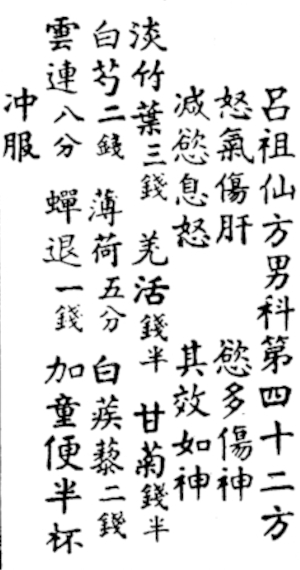 呂祖仙方男科第四十二方
怒氣傷肝　慾多傷神
減慾息怒　其效如神
淡竹葉三錢　羌活錢半　甘菊錢半
白芍二錢　薄荷五分　白蒺藜二錢
雲連八分　蟬退一錢　加童便半杯
冲服